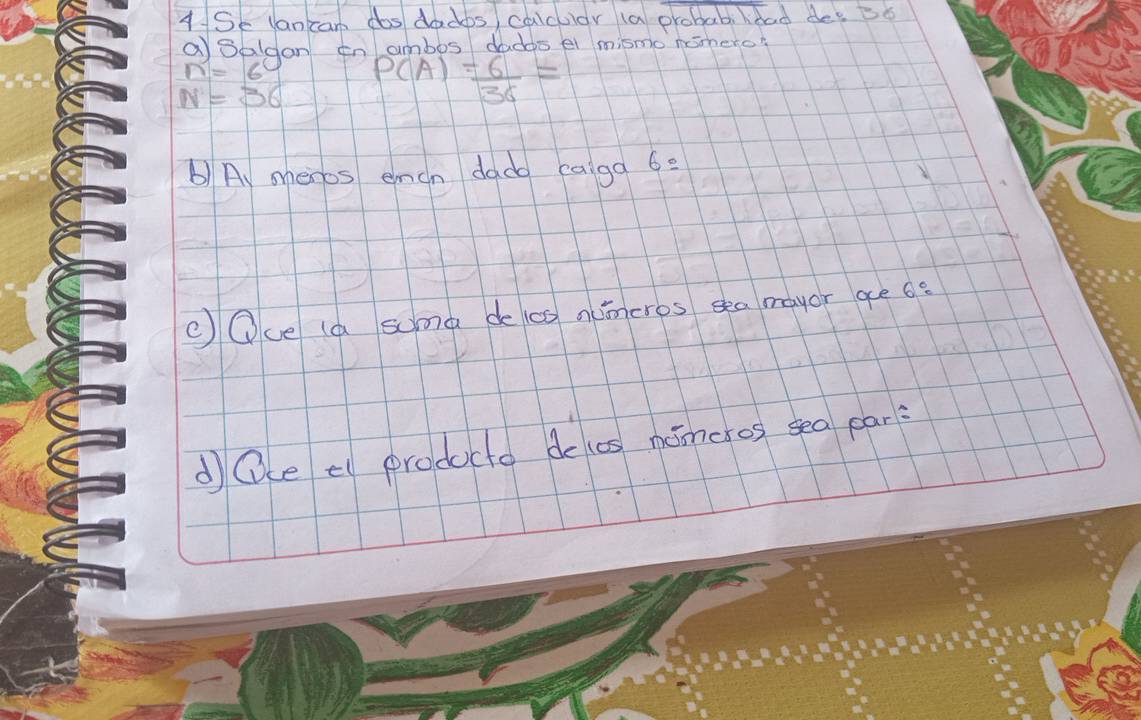 4. Se lanzan dos dados, calcular la probabilidad de: 36
a) Salgan en ambos dados el mismo número:
n = 6 P(A) = 6/36 =
N = 36
b) Al menos en un dado caiga 6:
c) Que la suma de los números sea mayor que 6:
d) Que el producto de los números sea par: